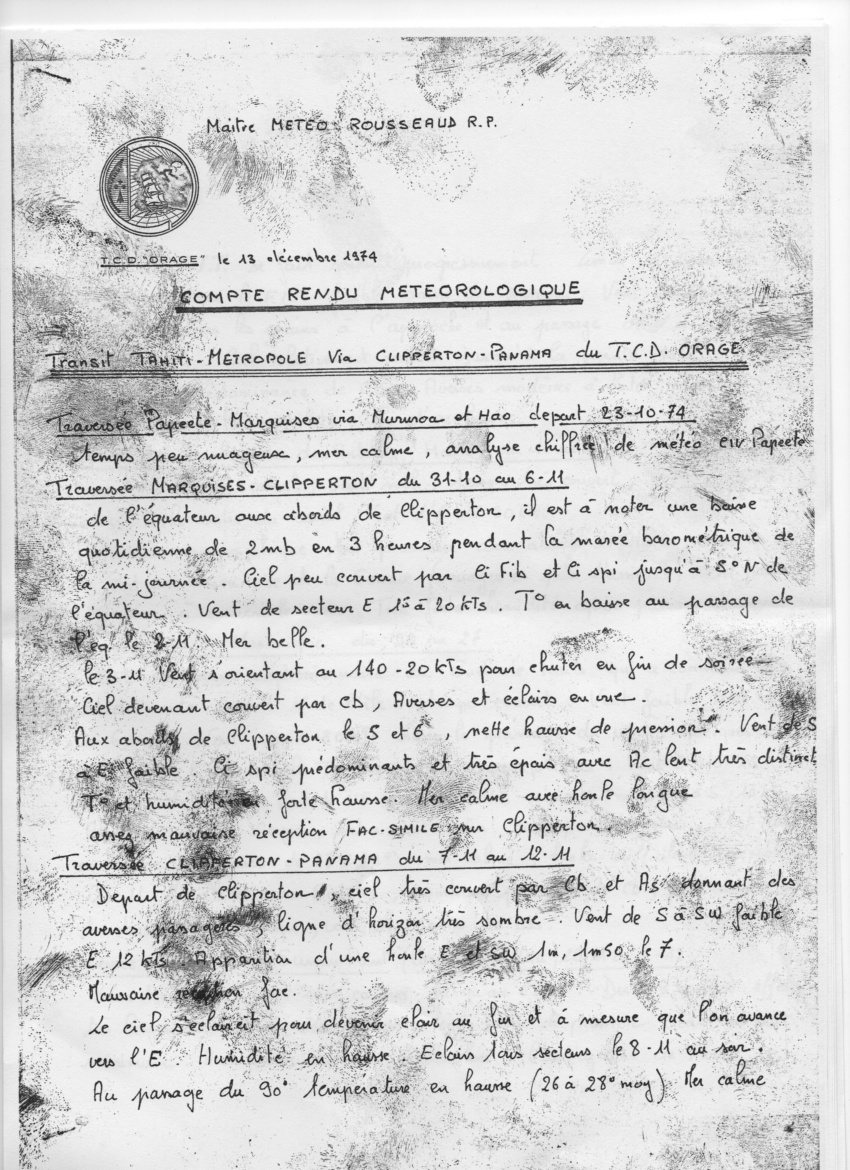 Maître METEO ROUSSEAUD R.P.
T.C.D. "ORAGE" le 13 décembre 1974
COMPTE RENDU METEOROLOGIQUE
Transit TAHITI-METROPOLE Via CLIPPERTON-PANAMA du T.C.D. ORAGE
Traversée Papeete-Marquises via Mururoa et Hao depart 23-10-74
temps peu nuageux, mer calme, analyse chiffrée de météo Papeete
Traversée MARQUISES-CLIPPERTON du 31-10 au 6-11
de l'équateur aux abords de Clipperton, il est à noter une baisse
quotidienne de 2mb en 3 heures pendant la marée barométrique de
la mi-journée. Ciel peu couvert par Ci Fib et Ci spi jusqu'à 5°N de
l'équateur. Vent de secteur E 15 à 20 kTs. T° en baisse au passage de
l'éq le 2-11 Mer belle.
le 3-11 Vent s'orientant au 140-20 kTs pour chuter en fin de soirée
Ciel devenant couvert par Cb, Averses et éclairs en vue.
Aux abords de Clipperton le 5 et 6, nette hausse de pression. Vent de S
à E faible. Ci spi prédominants et très épais avec Ac lent très distinct
T° et humidité en forte hausse. Mer calme avec houle longue
assez mauvaise réception FAC-SIMILE sur Clipperton.
Traversée CLIPPERTON-PANAMA du 7-11 au 12-11
Depart de Clipperton, ciel très couvert par Cb et As donnant des
averses passagères, ligne d'horizon très sombre. Vent de S à SW faible
E 12 kTs. Apparition d'une houle E et SW 1m, 1m50 le 7.
Mauvaise réception fac.
Le ciel s'éclaircit pour devenir clair au fur et à mesure que l'on avance
vers l'E. Humidité en hausse. Eclairs tous secteurs le 8-11 au soir.
Au passage du 90° température en hausse (26 à 28° moy) Mer calme